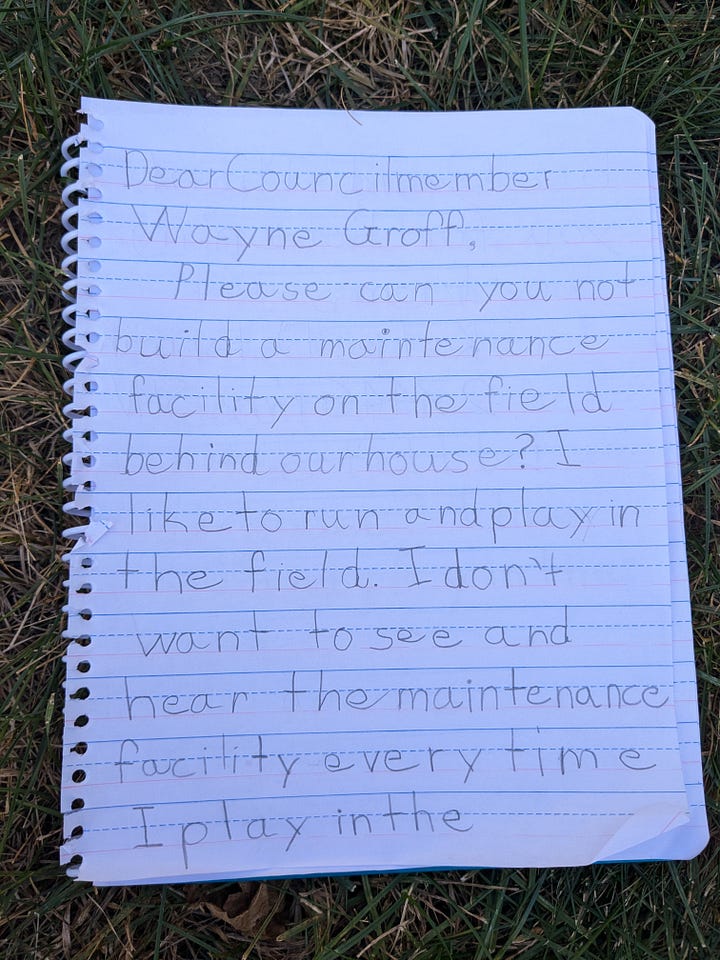 Dear Councilmember
Wayne Groff,
Please can you not
build a maintenance
facility on the field
behind our house? I
like to run and play in
the field. I don't
want to see and
hear the maintenance
facility every time
I play in the